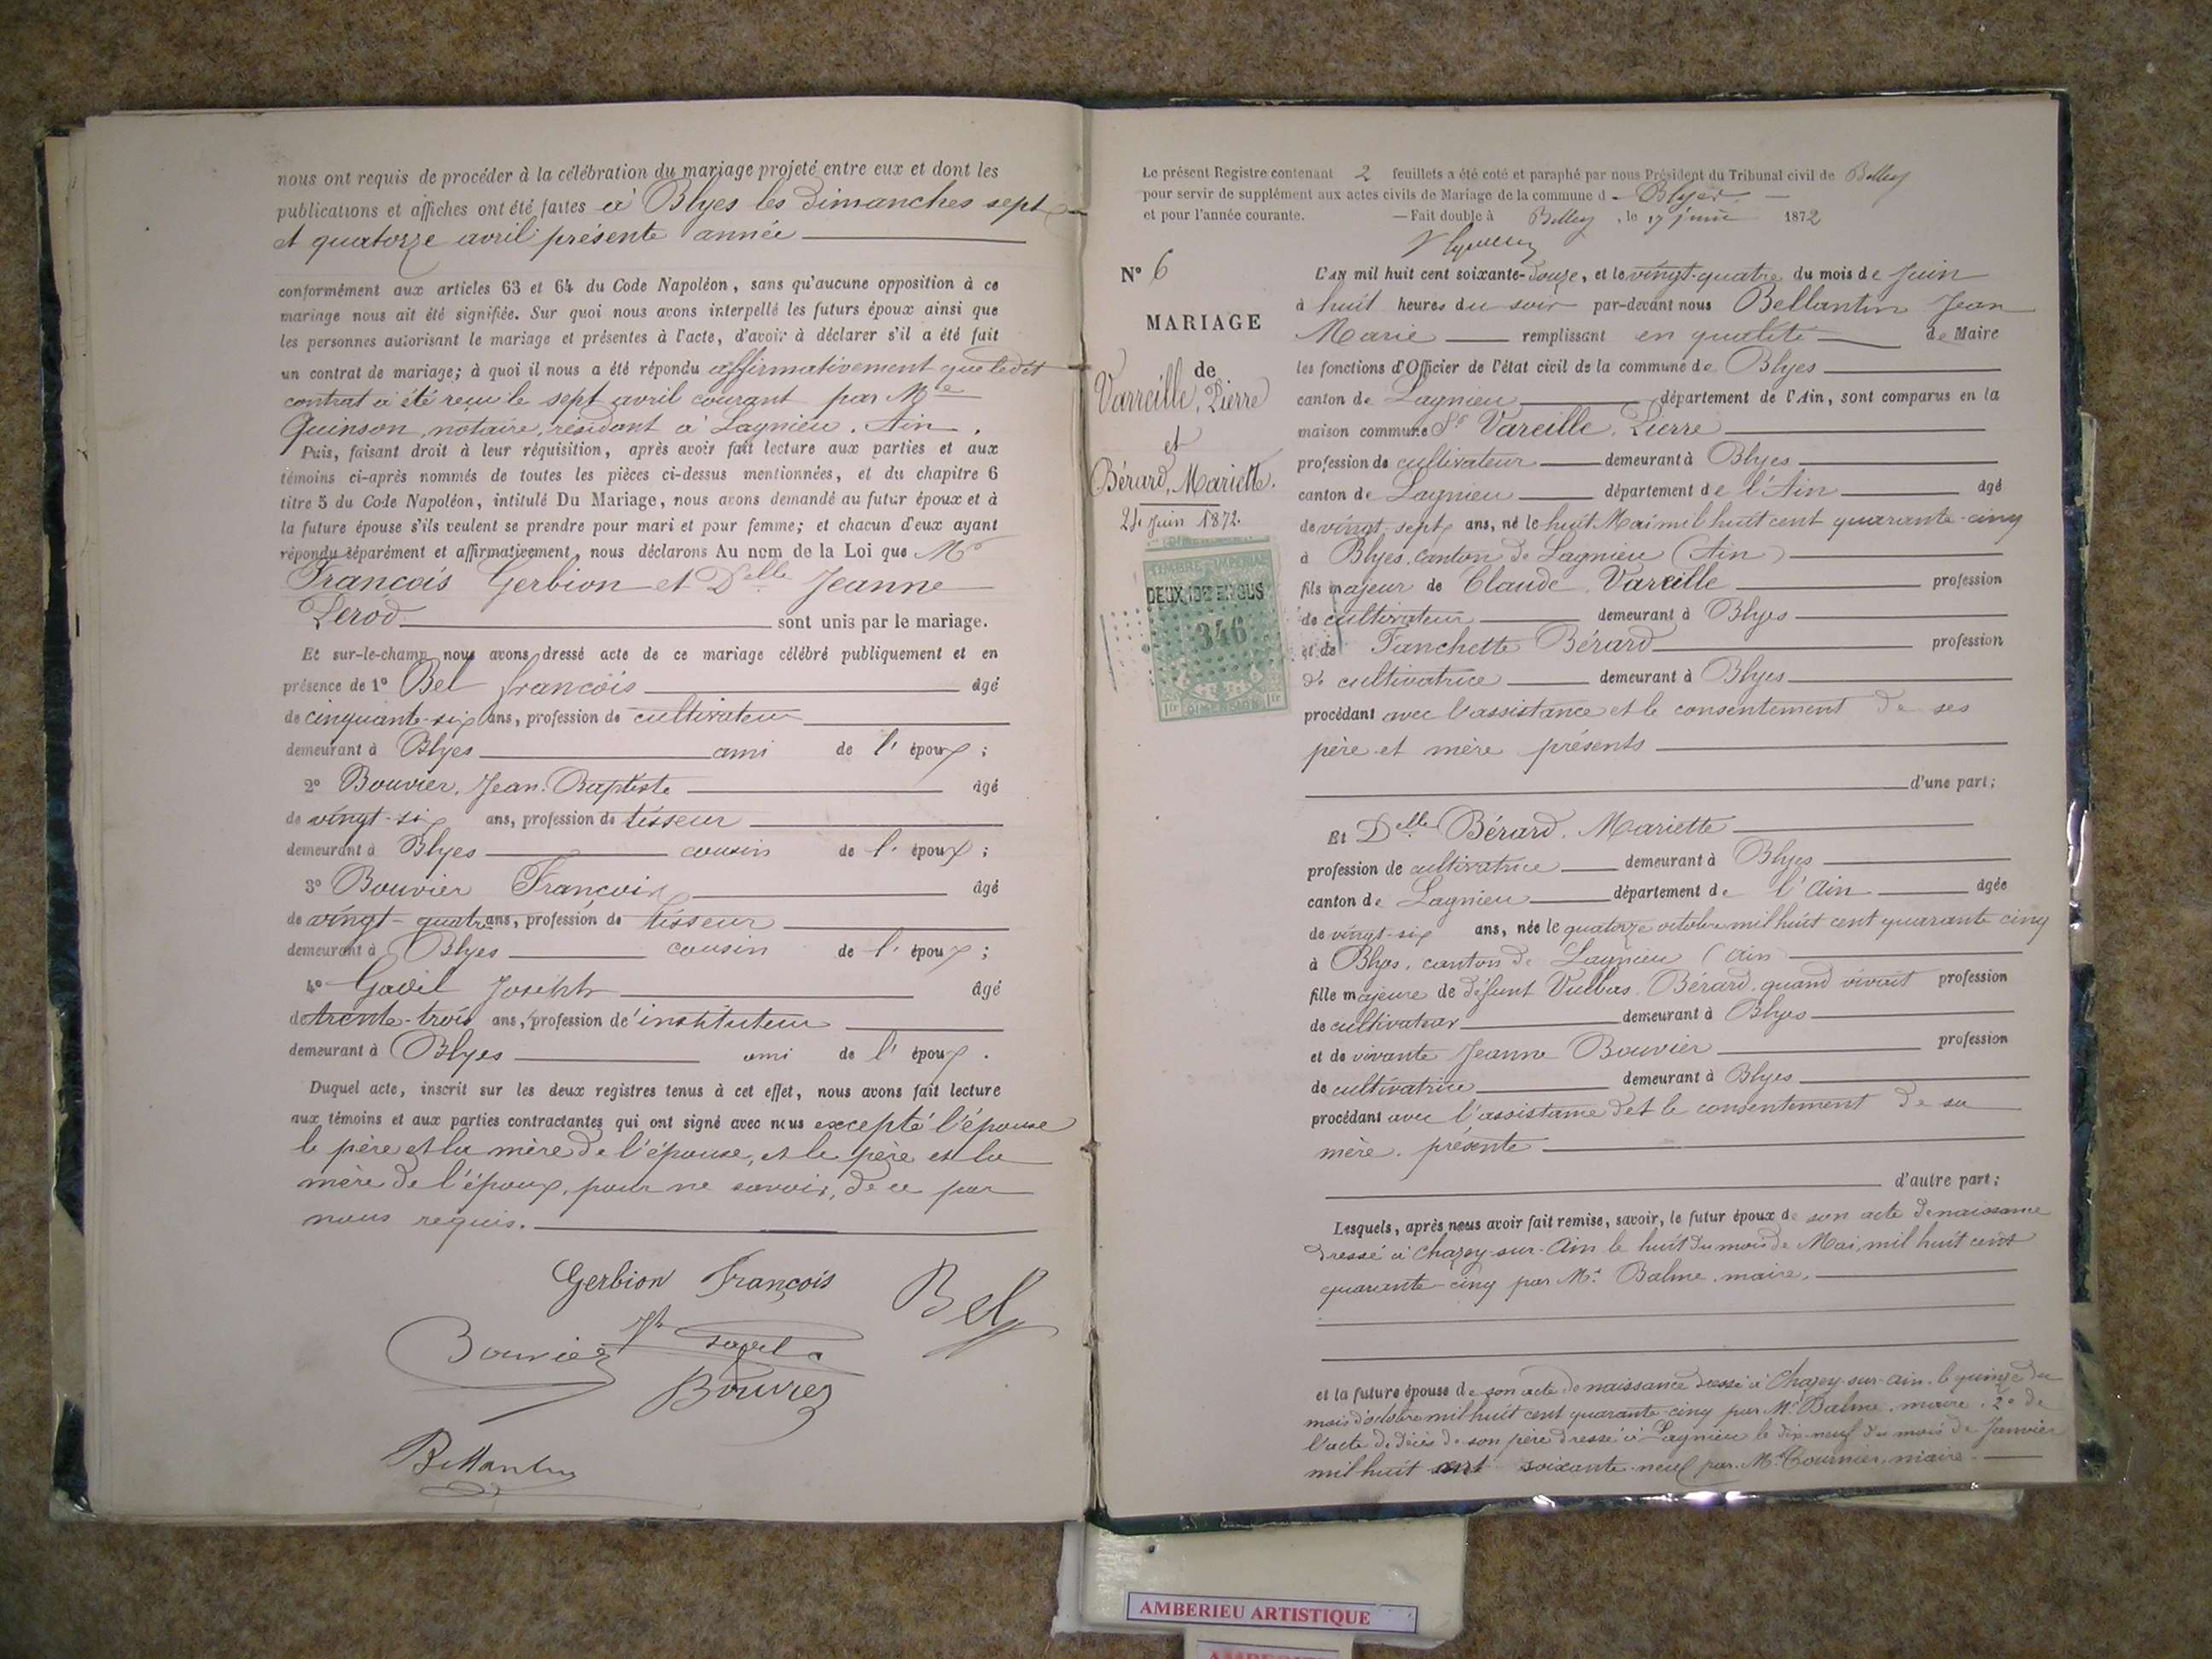 nous ont requis de procéder à la célébration du mariage projeté entre eux et dont les
publications et affiches ont été faites à Blyes les dimanches sept
et quatorze avril présente année
conformément aux articles 63 et 64 du Code Napoléon, sans qu'aucune opposition à ce
mariage nous ait été signifiée. Sur quoi nous avons interpellé les futurs époux ainsi que
les personnes autorisant le mariage et présentes à l'acte, d'avoir à déclarer s'il a été fait
un contrat de mariage; à quoi il nous a été répondu affirmativement que ledit
contrat a été reçu le sept avril courant par Me
Quinson, notaire, résidant à Lagnieu. Ain.
Puis, faisant droit à leur réquisition, après avoir fait lecture aux parties et aux
témoins ci-après nommés de toutes les pièces ci-dessus mentionnées, et du chapitre 6
titre 5 du Code Napoléon, intitulé Du Mariage, nous avons demandé au futur époux et à
la future épouse s'ils veulent se prendre pour mari et pour femme; et chacun d'eux ayant
répondu séparément et affirmativement, nous déclarons Au nom de la Loi que Mr
François Gerbion et Delle Jeanne
Lerod sont unis par le mariage.
Et sur-le-champ nous avons dressé acte de ce mariage célébré publiquement et en
présence de 1° Bel françois âgé
de cinquante-six ans, profession de cultivateur
demeurant à Blyes ami de l'époux;
2° Bouvier, Jean-Baptiste âgé
de vingt-six ans, profession de tisseur
demeurant à Blyes cousin de l'époux;
3° Bouvier François âgé
de vingt-quatre ans, profession de tisseur
demeurant à Blyes cousin de l'époux;
4° Gavel Joseph âgé
de trente-trois ans, profession d'instituteur
demeurant à Blyes ami de l'époux.
Duquel acte, inscrit sur les deux registres tenus à cet effet, nous avons fait lecture
aux témoins et aux parties contractantes qui ont signé avec nous excepté l'épouse
le père et la mère de l'épouse, et le père et la
mère de l'époux, pour ne savoir, de ce par
nous requis.
Gerbion François Bel
Bouvier
Bouvier
Bellantin
Le présent Registre contenant 2 feuillets a été coté et paraphé par nous Président du Tribunal civil de Belley
pour servir de supplément aux actes civils de Mariage de la commune d Blyes
et pour l'année courante. — Fait double à Belley, le 17 juin 1872
N° 6
MARIAGE
de
Varreille, Pierre
et
Bérard, Mariette.
24 Juin 1872.
TIMBRE IMPERIAL
DEUX 10es EN SUS
346
1fr DIMENSION 1fr
L'AN mil huit cent soixante-douze, et le vingt-quatre du mois de Juin
à huit heures du soir par-devant nous Bellantin Jean
Marie remplissant en qualité de Maire
les fonctions d'Officier de l'état civil de la commune de Blyes
canton de Lagnieu département de l'Ain, sont comparus en la
maison commune Sr Vareille, Pierre
profession de cultivateur demeurant à Blyes
canton de Lagnieu département de l'Ain âgé
de vingt-sept ans, né le huit Mai mil huit cent quarante-cinq
à Blyes, canton de Lagnieu (Ain)
fils majeur de Claude Vareille profession
de cultivateur demeurant à Blyes
et de Fanchette Bérard profession
de cultivatrice demeurant à Blyes
procédant avec l'assistance et le consentement de ses
père et mère présents
d'une part;
Et Delle Bérard, Mariette
profession de cultivatrice demeurant à Blyes
canton de Lagnieu département de l'Ain âgée
de vingt-six ans, née le quatorze octobre mil huit cent quarante cinq
à Blyes, canton de Lagnieu (Ain
fille majeure de défunt Vulbas Bérard, quand vivait profession
de cultivateur demeurant à Blyes
et de vivante Jeanne Bouvier profession
de cultivatrice demeurant à Blyes
procédant avec l'assistance d et le consentement de sa
mère, présente
d'autre part;
Lesquels, après nous avoir fait remise, savoir, le futur époux de son acte de naissance
dressé à Chazey-sur-Ain le huit du mois de Mai, mil huit cent
quarante-cinq par Mr Balme, maire.
et la future épouse de son acte de naissance dressé à Chazey-sur-Ain, le quinze du
mois d'octobre mil huit cent quarante-cinq par Mr Balme, maire. 2° de
l'acte de décès de son père dressé à Lagnieu le dix-neuf du mois de Janvier
mil huit cent soixante-neuf par Mr Tournier, maire.
AMBERIEU ARTISTIQUE